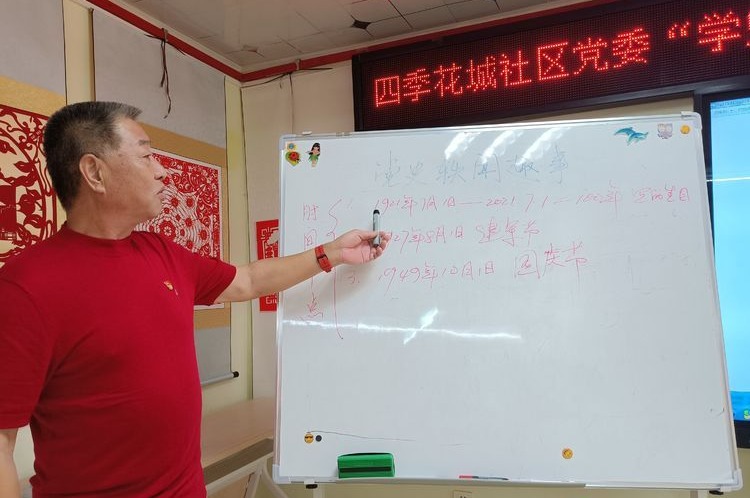 四季花城社区党委“学
党史轶闻趣事
时间点
1、1921年7月1日——2021.7.1——100年 党的生日
1927年8月1日 建军节
3、1949年10月1日 国庆节